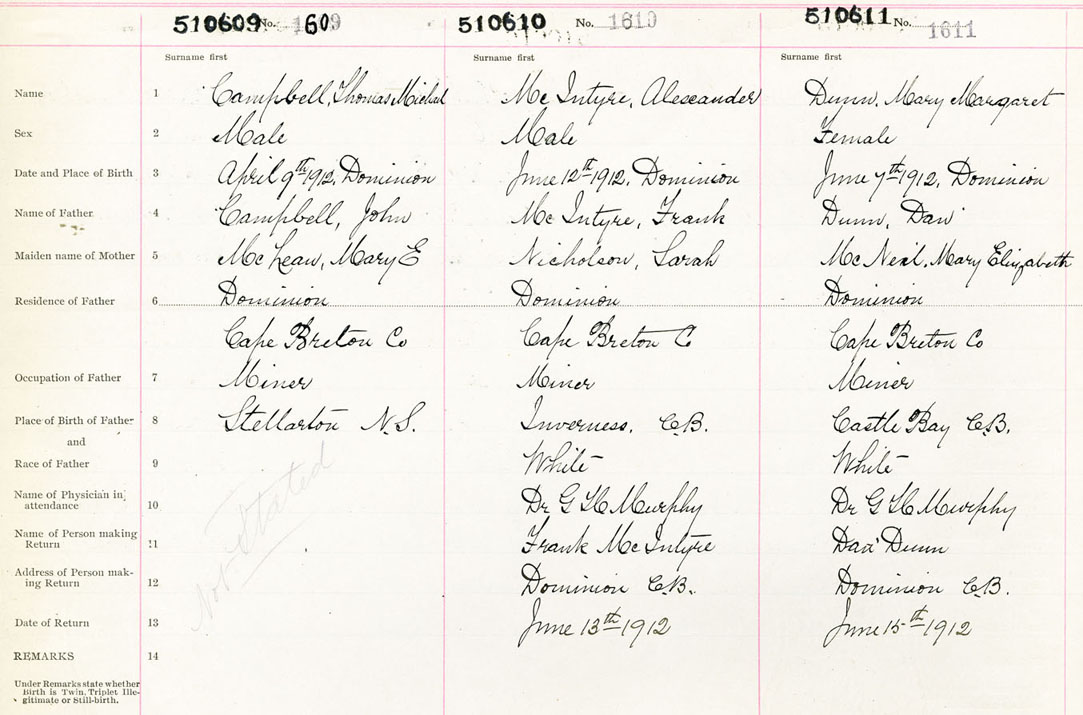 510609 No. 1609 609
510610 No. 1610
510611 No. 1611
Surname first Surname first Surname first
Name 1 Campbell, Thomas Michael Mc Intyre, Alexander Dunn, Mary Margaret
Sex 2 Male Male Female
Date and Place of Birth 3 April 9th 1912, Dominion June 12th 1912, Dominion June 7th 1912, Dominion
Name of Father 4 Campbell, John Mc Intyre, Frank Dunn, Dan
Maiden name of Mother 5 Mc Lean, Mary E Nicholson, Sarah Mc Neil, Mary Elizabeth
Residence of Father 6 Dominion Dominion Dominion
Cape Breton Co Cape Breton Co Cape Breton Co
Occupation of Father 7 Miner Miner Miner
Place of Birth of Father 8 Stellarton N.S. Inverness, C.B. Castle Bay C.B.
and
Race of Father 9 White White
Name of Physician in attendance 10 Dr G H Murphy Dr G H Murphy
Name of Person making Return 11 Frank Mc Intyre Dan Dunn
Address of Person mak-ing Return 12 Dominion C.B. Dominion C.B.
Not Stated
Date of Return 13 June 13th 1912 June 15th 1912
REMARKS 14
Under Remarks state whether
Birth is Twin, Triplet Ille-
gitimate or Still-birth.